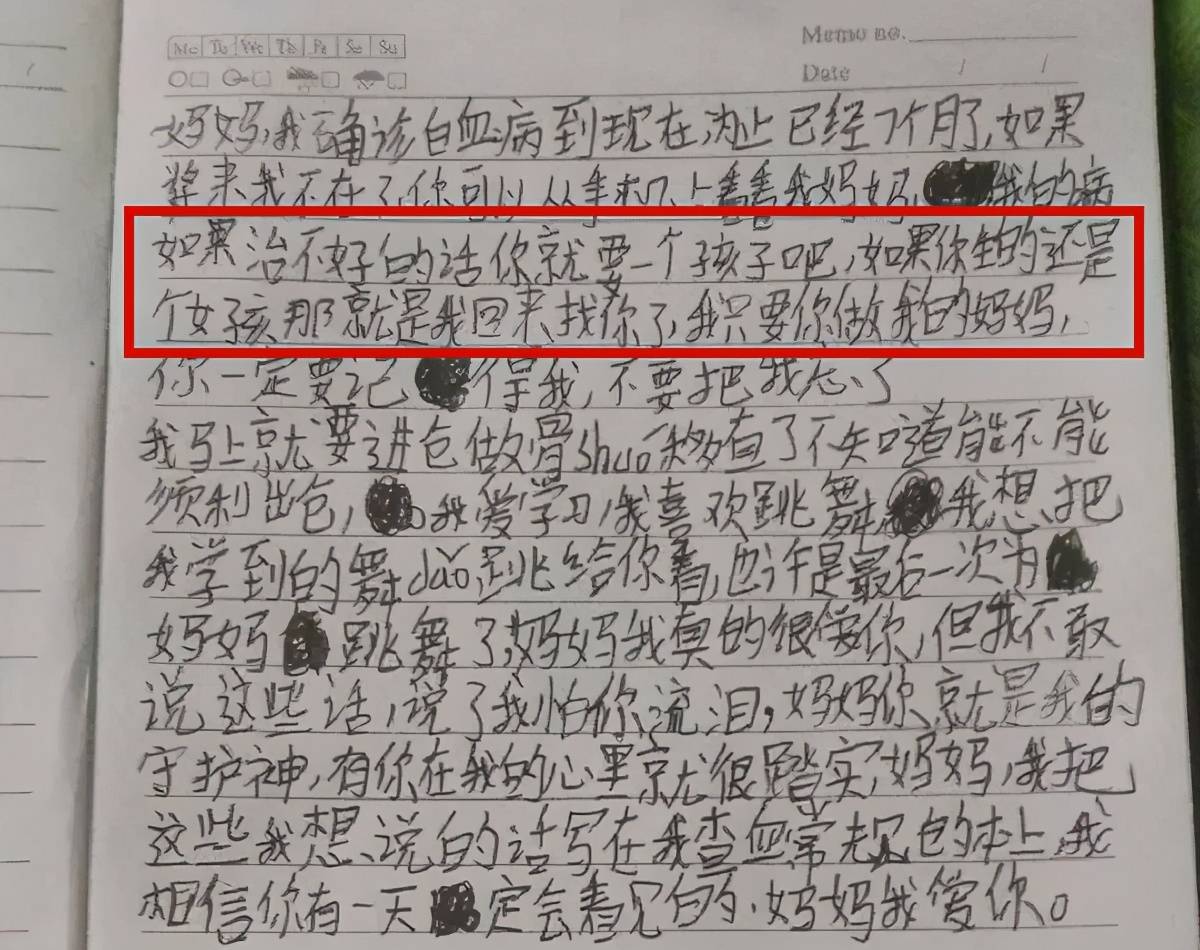 Mo Tu We Th Fr Sa Su
Memo No.
Date / /
妈妈,我确诊白血病到现在为止已经7个月了,如果
将来我不在了,你可以从手机上看看我妈妈,我的病
如果治不好的话你就要一个孩子吧,如果你生的还是
个女孩那就是我回来找你了,我只要你做我的妈妈,
你一定要记得我,不要把我忘了
我马上就要进仓做骨shuo移植了不知道能不能
顺利出仓,我爱学习,我喜欢跳舞,我想把
我学到的舞dǎo跳给你看,也许是最后一次为
妈妈跳舞了,妈妈我真的很爱你,但我不敢
说这些话,说了我怕你流泪,妈妈你就是我的
守护神,有你在我的心里就很踏实,妈妈,我把
这些我想说的话写在我查血常规的本上,我
相信你有一天定会看见的,妈妈我爱你。